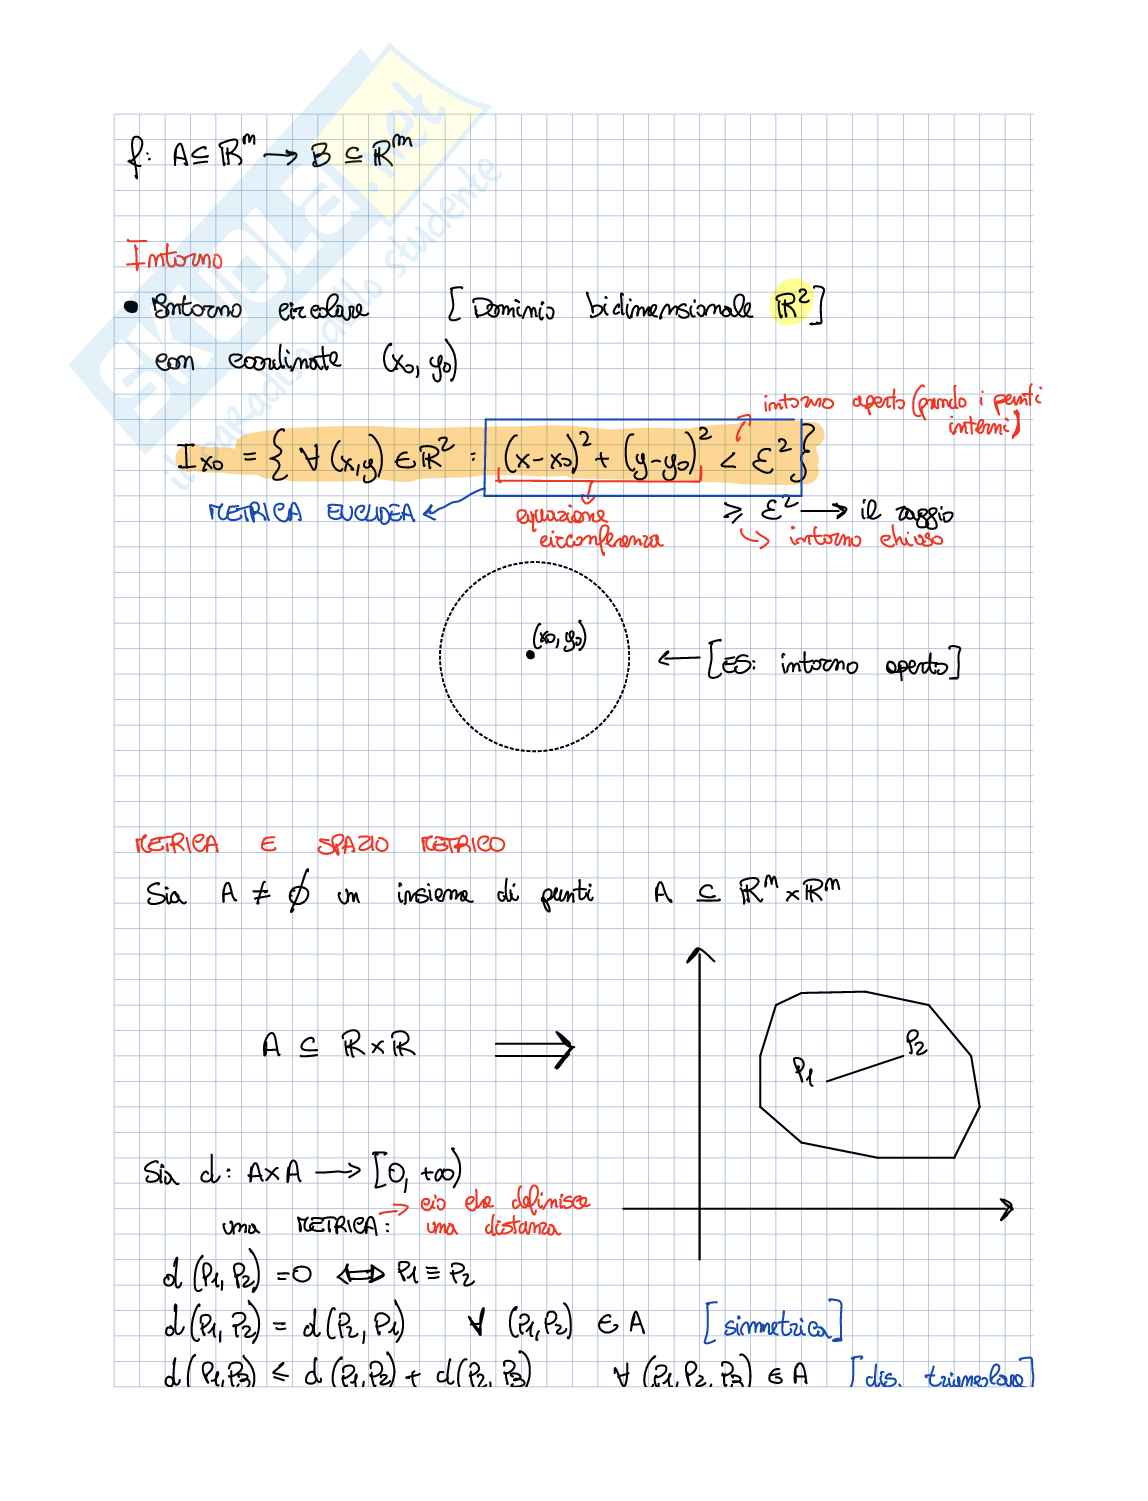 f: A ⊆ ℝᵐ → B ⊆ ℝᵐ
Intorno
• Intorno circolare [Dominio bidimensionale ℝ²]
con coordinate (x₀, y₀)
intorno aperto (prendo i punti
interni)
I x₀ = { ∀ (x,y) ∈ ℝ² : (x-x₀)² + (y-y₀)² < ε² }
METRICA EUCLIDEA ← equazione ≥ ε² → il raggio
circonferenza ↳ intorno chiuso
(x₀, y₀)
← [ES: intorno aperto]
METRICA E SPAZIO METRICO
Sia A ≠ ∅ un insieme di punti A ⊆ ℝⁿ × ℝⁿ
A ⊆ ℝ × ℝ ⟹
P₁ P₂
Sia d: A×A → [0, +∞)
una METRICA: → ciò che definisce
una distanza
d(P₁, P₂) = 0 ⟺ P₁ ≡ P₂
d(P₁, P₂) = d(P₂, P₁) ∀ (P₁, P₂) ∈ A [simmetrica]
d(P₁, P₃) ≤ d(P₁, P₂) + d(P₂, P₃) ∀ (P₁, P₂, P₃) ∈ A [dis. triangolare]
SKUOLA.net